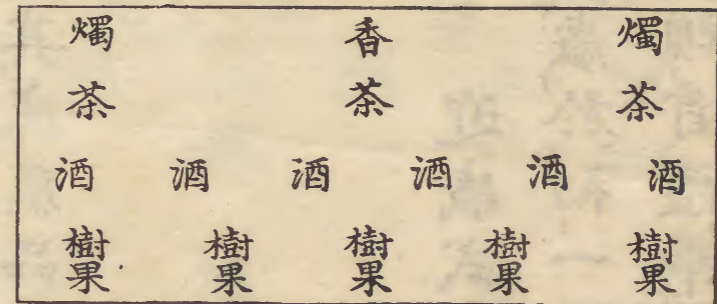 燭 香 燭
茶 茶 茶
酒 酒 酒 酒 酒 酒
樹果 樹果 樹果 樹果 樹果